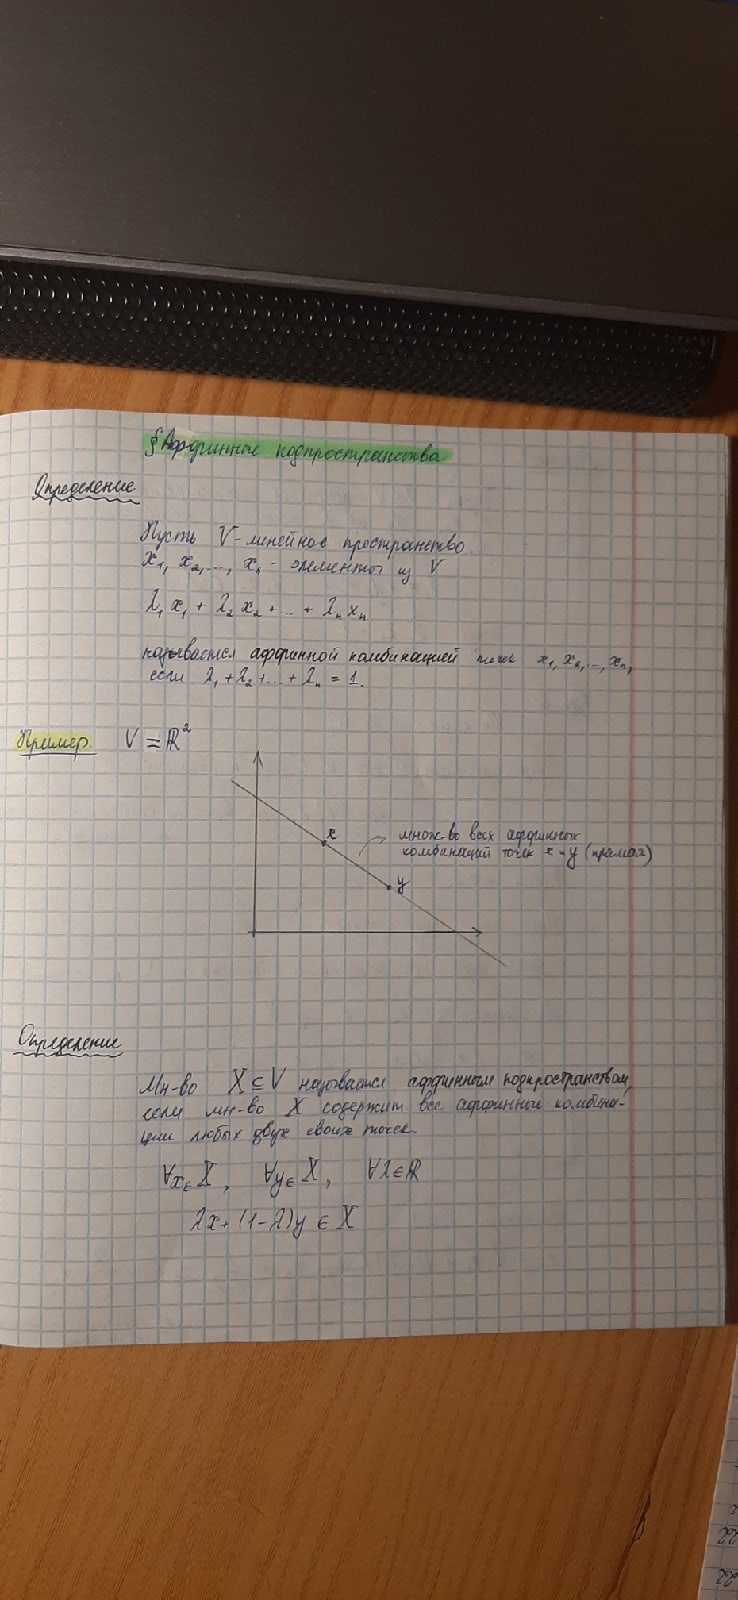 § Аффинные подпространства
Определение
Пусть V - линейное пространство.
x₁, x₂,..., x₁ - элементы из V
λ₁x₁ + λ₂x₂ + ... + λₙxₙ
называется аффинной комбинацией точек x₁, x₂,..., xₙ,
если λ₁ + λ₂ + ... + λₙ = 1.
Пример. V = ℝ²
x
множ-во всех аффинных
комбинаций точек x и y (прямая)
y
Определение
Мн-во X ⊆ V называется аффинным подпространством,
если мн-во X содержит все аффинные комбина-
ции любых двух своих точек.
∀x∈X, ∀y∈X, ∀λ∈ℝ
λx + (1-λ)y ∈ X